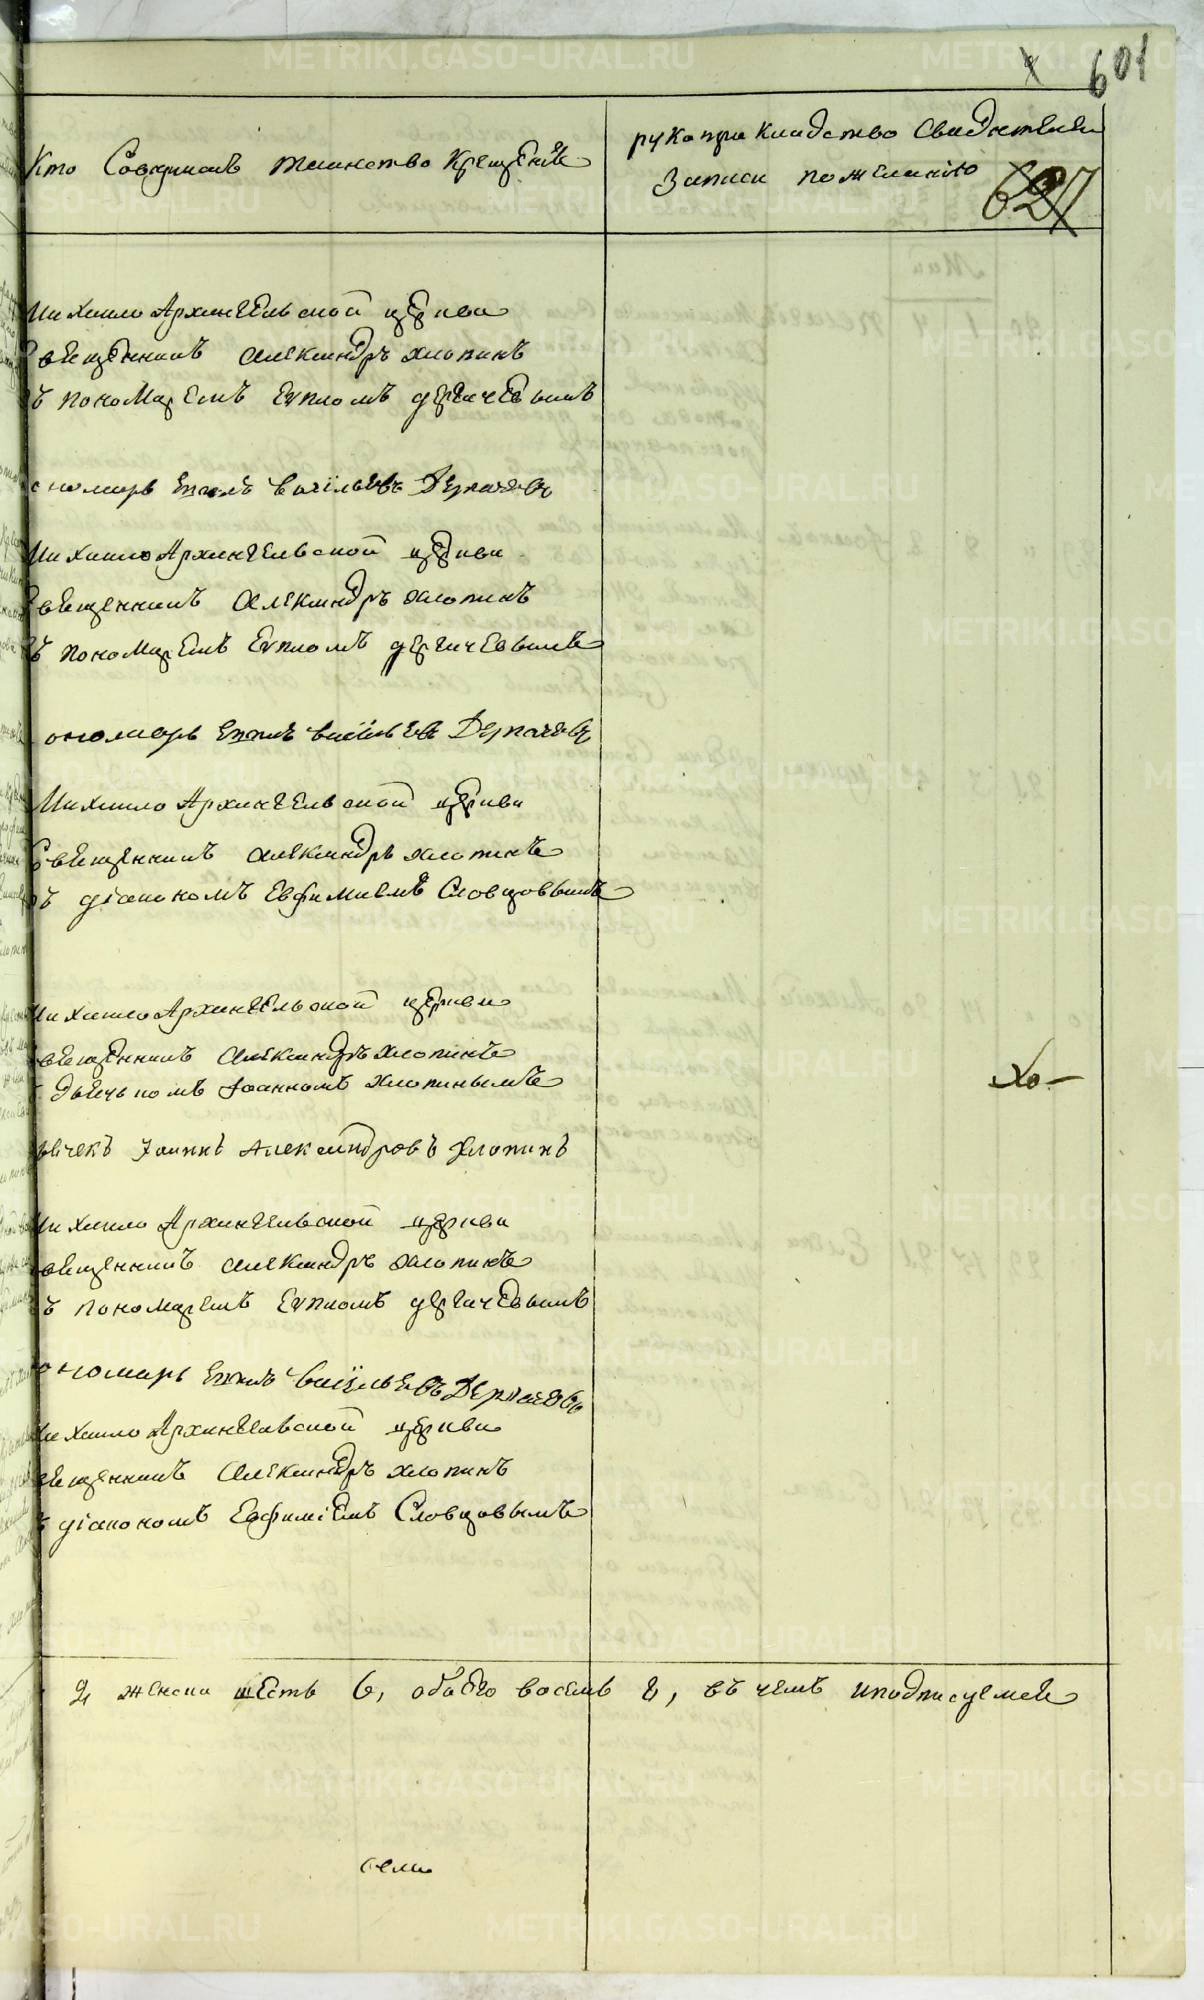 601
Кто Совершалъ таинство крещенїе
рукоприкладство Свидетелей
записи по желанию
627
Михаило Архангельской церкви
Священникъ Александръ Хлопинъ
съ пономаремъ Еvпломъ дергачевымъ
пономарь Еvплъ Васильевъ Дергачевъ
Михаило Архангельской церкви
Священникъ Александръ Хлопинъ
съ пономаремъ Еvпломъ дергачевымъ
пономарь Еvплъ Васильевъ Дергачевъ
Михаило Архангельской церкви
Священникъ Александръ Хлопинъ
съ дїакономъ Евфимиемъ Словцовымъ
Михаило Архангельской церкви
Священникъ Александръ Хлопинъ
дьячькомъ Іоанномъ Хлопинымъ
Іоаннъ Александровъ Хлопинъ
Михаило Архангельской церкви
Священникъ Александръ Хлопинъ
съ пономаремъ Еvпломъ дергачевымъ
пономарь Еvплъ Васильевъ Дергачевъ
Михаило Архангельской церкви
Священникъ Александръ Хлопинъ
съ дїакономъ Евфимїемъ Словцовымъ
Хо-
2, женска шесть 6, обоего восемь 8, въ чемъ и подписуемся
METRIKI.GASO-URAL.RU